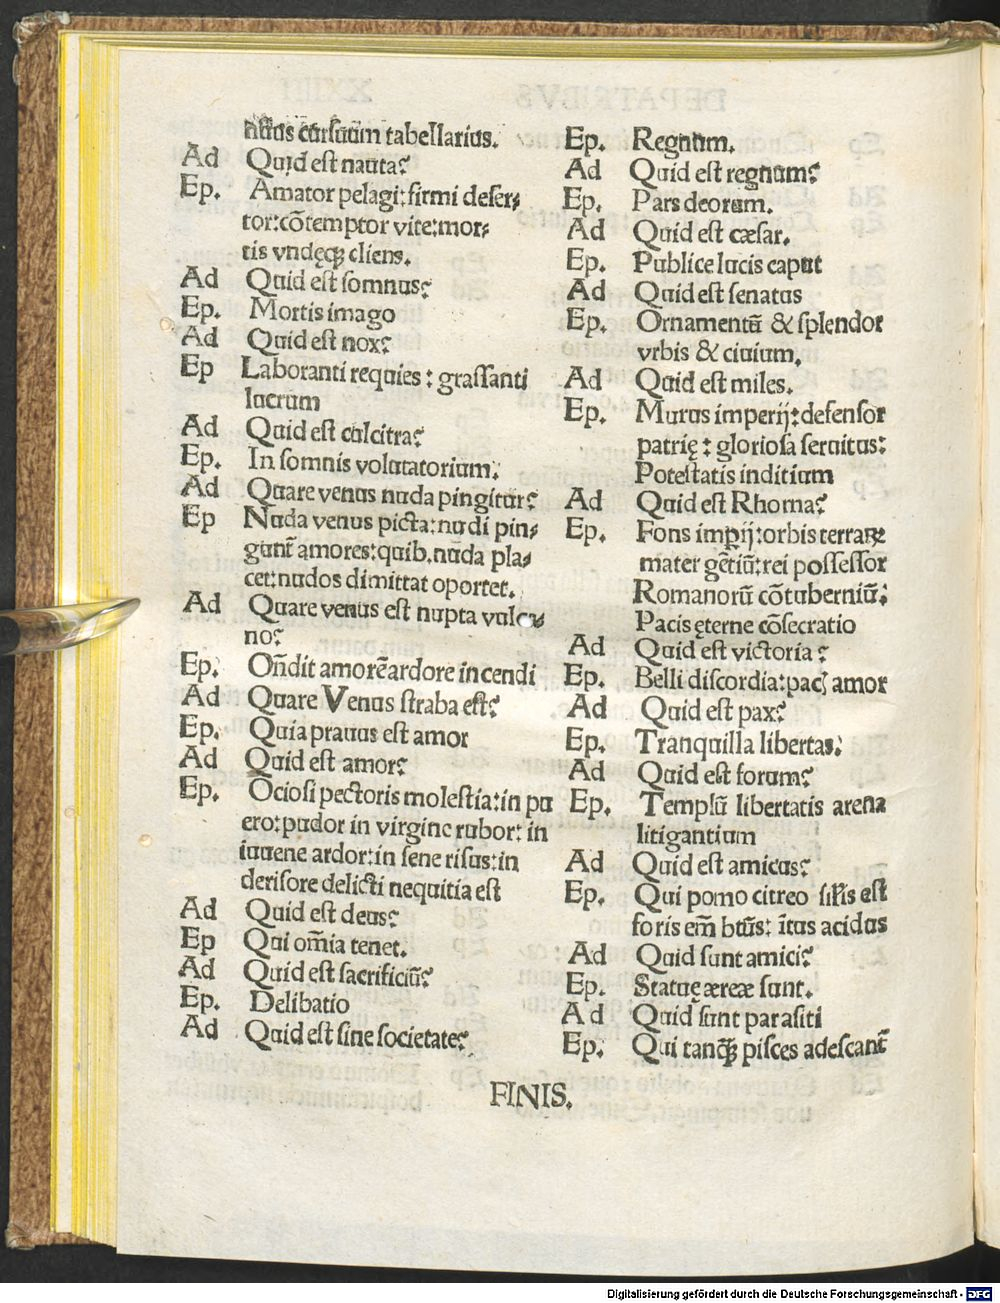 cursuum tabellarius.
Ad Quid est nauta?
Ep. Amator pelagi: firmi deser⸗
tor: cõtemptor vite: mor⸗
tis vndęqꝫ cliens.
Ad Quid est somnus?
Ep. Mortis imago
Ad Quid est nox?
Ep Laboranti requies : grassanti
lucrum
Ad Quid est culcitra?
Ep. In somnis volutatorium.
Ad Quare venus nuda pingitur?
Ep Nuda venus picta: nudi pin⸗
gunt̃ amores: quib. nuda pla⸗
cet: nudos dimittat oportet.
Ad Quare venus est nupta vulca⸗
no?
Ep. Oñdit amorẽ ardore incendi
Ad Quare Venus straba est?
Ep. Quia prauus est amor
Ad Quid est amor?
Ep. Ociosi pectoris molestia: in pu
ero: pudor in virgine rubor: in
iuuene ardor: in sene risus: in
derisore delicti nequitia est
Ad Quid est deus?
Ep Qui om̃ia tenet.
Ad Quid est sacrificiũ?
Ep. Delibatio
Ad Quid est sine societate?
Ep. Regnum.
Ad Quid est regnum?
Ep. Pars deorum.
Ad Quid est cæsar.
Ep. Publice lucis caput
Ad Quid est senatus
Ep. Ornamentũ & splendor
vrbis & ciuium.
Ad Quid est miles.
Ep. Murus imperij: defensor
patrię : gloriosa seruitus:
Potestatis inditium
Ad Quid est Rhoma?
Ep. Fons imꝑij: orbis terraꝝ
mater gẽtiũ: rei possessor
Romanorũ cõtuberniũ:
Pacis ęterne cõsecratio
Ad Quid est victoria ?
Ep. Belli discordia: pacꝭ amor
Ad Quid est pax?
Ep. Tranquilla libertas.
Ad Quid est forum?
Ep. Templũ libertatis arena
litigantium
Ad Quid est amicus?
Ep. Qui pomo citreo sil̃is est
foris em̃ btũs: ĩtus acidus
Ad Quid sunt amici?
Ep. Statuę æreæ sunt.
Ad Quid sunt parasiti
Ep. Qui tanq̃ꝫ pisces adescant̃
FINIS.
Digitalisierung gefördert durch die Deutsche Forschungsgemeinschaft - DFG